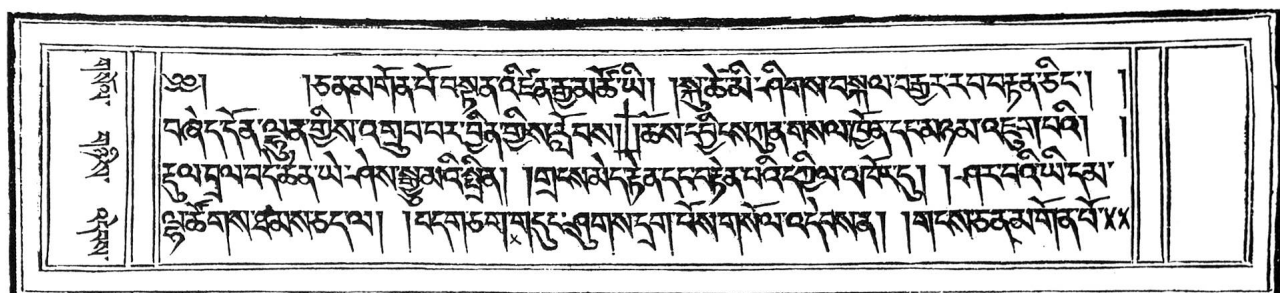 གསོལ་ གཉིས་ འདེབས་
༄༅། །ཅན་མགོན་པོ་བསྟན་འཛིན་རྒྱ་མཚོ་ཡི། །སྐུ་ཚེ་མི་ཤིགས་བསྐལ་བརྒྱར་རབ་བརྟན་ཅིང་། །
བཞེད་དོན་ལྷུན་གྱིས་འགྲུབ་པར་བྱིན་གྱིས་རློབས། །ཆོས་དབྱིངས་ཀུན་གསལ་ཁྱོན་དང་མཉམ་འཇུག་པའི། །
རྡུལ་བྲལ་བདེ་ཆེན་ཡེ་ཤེས་སྒྱུ་མའི་སྤྲིན། །གྲངས་མེད་རྟེན་དང་བརྟེན་པའི་དཀྱིལ་འཁོར་དུ། །ཤར་བའི་ཡི་དམ་
ལྷ་ཚོགས་ཐམས་ཅད་ལ། །བདག་ཅག་གདུང་ཤུགས་དྲག་པོས་གསོལ་འདེབས་ན། །གངས་ཅན་མགོན་པོ་xx